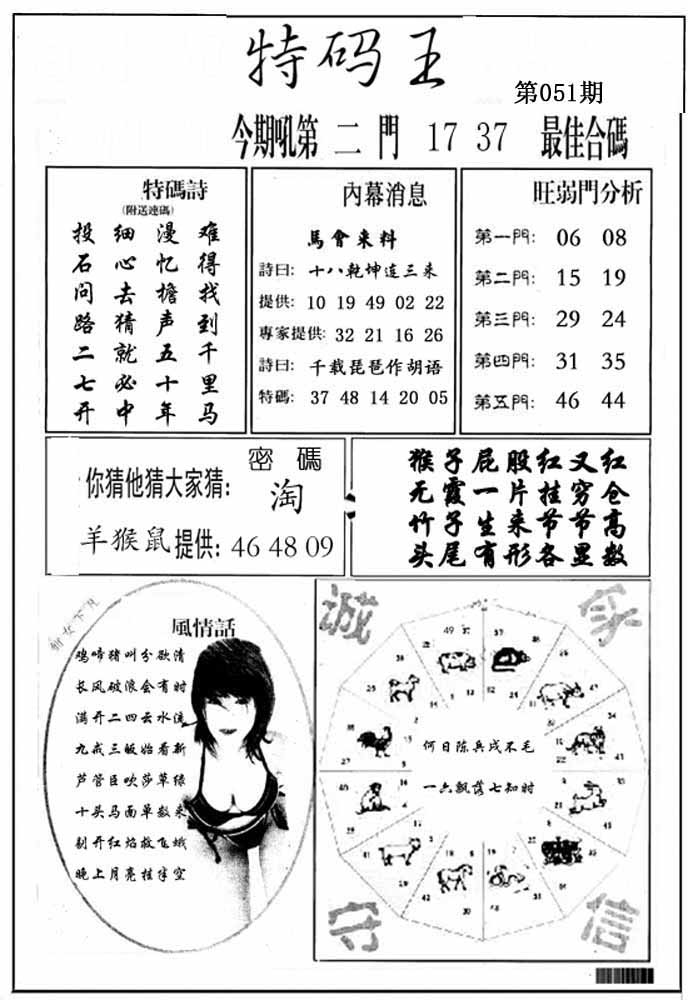 特码王
第051期
今期吼第二門 17 37 最佳合碼
特碼詩
(附送連碼)
投细漫难
石心忆得
问去擔找
路猜声到
二就五千
七必十里
开中年马
內幕消息
馬會来料
詩曰: 十八乾坤连三来
提供: 10 19 49 02 22
專家提供: 32 21 16 26
詩曰: 千载琵琶作胡语
特碼: 37 48 14 20 05
旺弱門分析
第一門: 06 08
第二門: 15 19
第三門: 29 24
第四門: 31 35
第五門: 46 44
密碼
你猜他猜大家猜: 淘
羊猴鼠提供: 46 48 09
猴子屁股红又红
无霞一片挂穷仓
竹子生来节节高
头尾有形各显数
風情話
鸡啼猪叫分欲清
长风破浪会有时
满开二四云水流
九戒三皈始看新
芦管臣吹莎草绿
十头马面单数来
别开红焰救飞蛾
晚上月亮挂半空
诚 家
何日陈兵戍不毛
一六飘落七知时
守 信